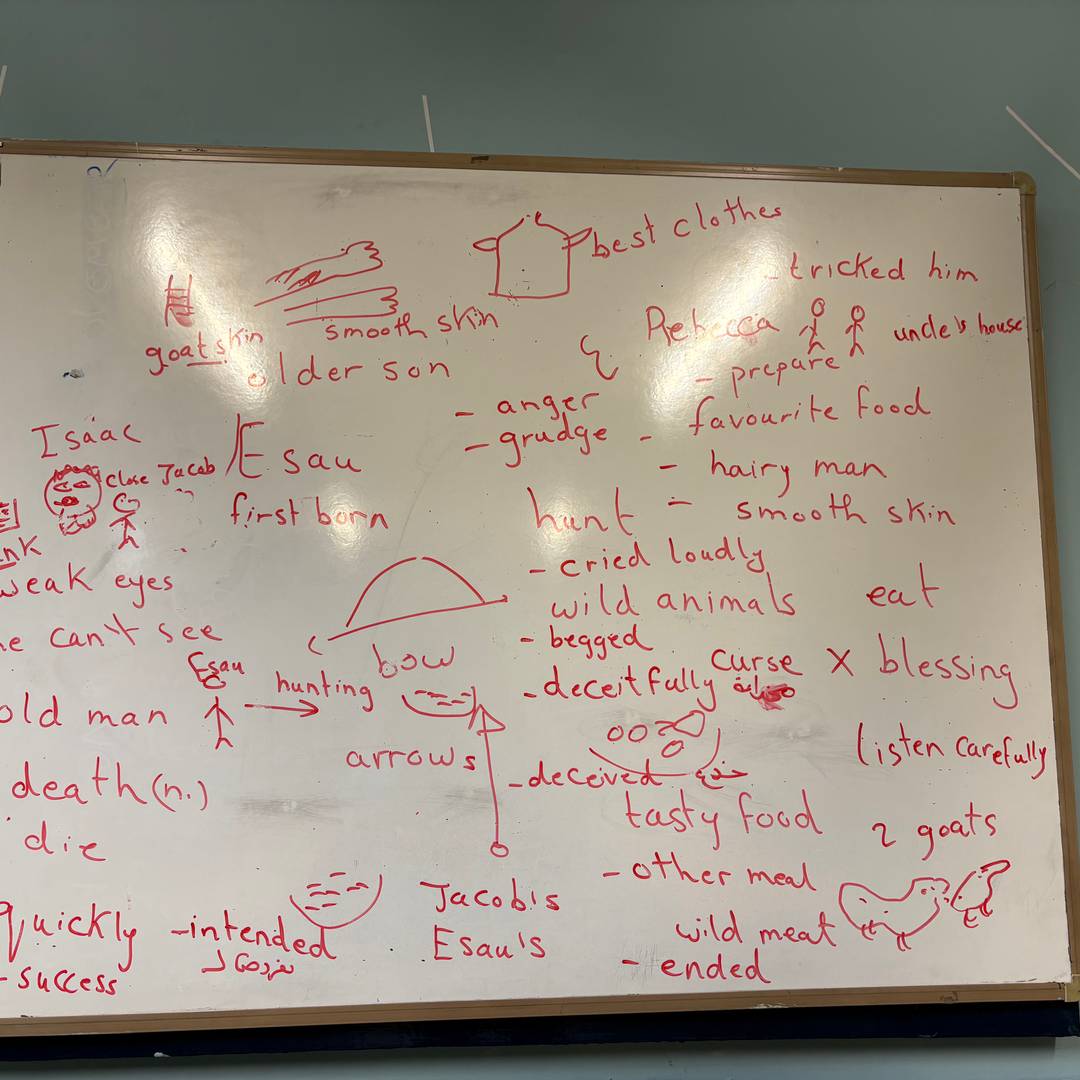 best clothes
tricked him
goatskin
smooth skin
Rebecca
uncle's house
older son
- prepare
- anger
favourite food
- grudge -
Isaac
Close Jacob
Esau
- hairy man
first born
hunt
- smooth skin
weak eyes
- cried loudly
wild animals
eat
he can't see
- begged
Esau
bow
curse X blessing
hunting
- deceitfully
old man
arrows
listen carefully
- deceived خدع
death (n.)
tasty food
2 goats
die
- other meal
Jacob's
quickly
- intended
Esau's
wild meat
- ended
- success